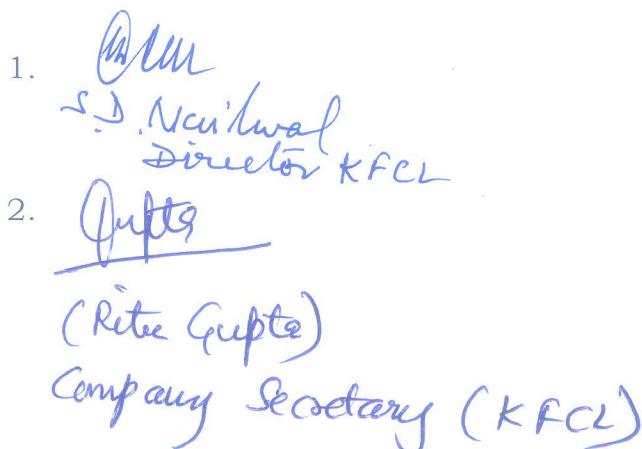 1.
S.D. Nailwal
Director KFCL
2. Gupta
(Ritu Gupta)
Company Secretary (KFCL)